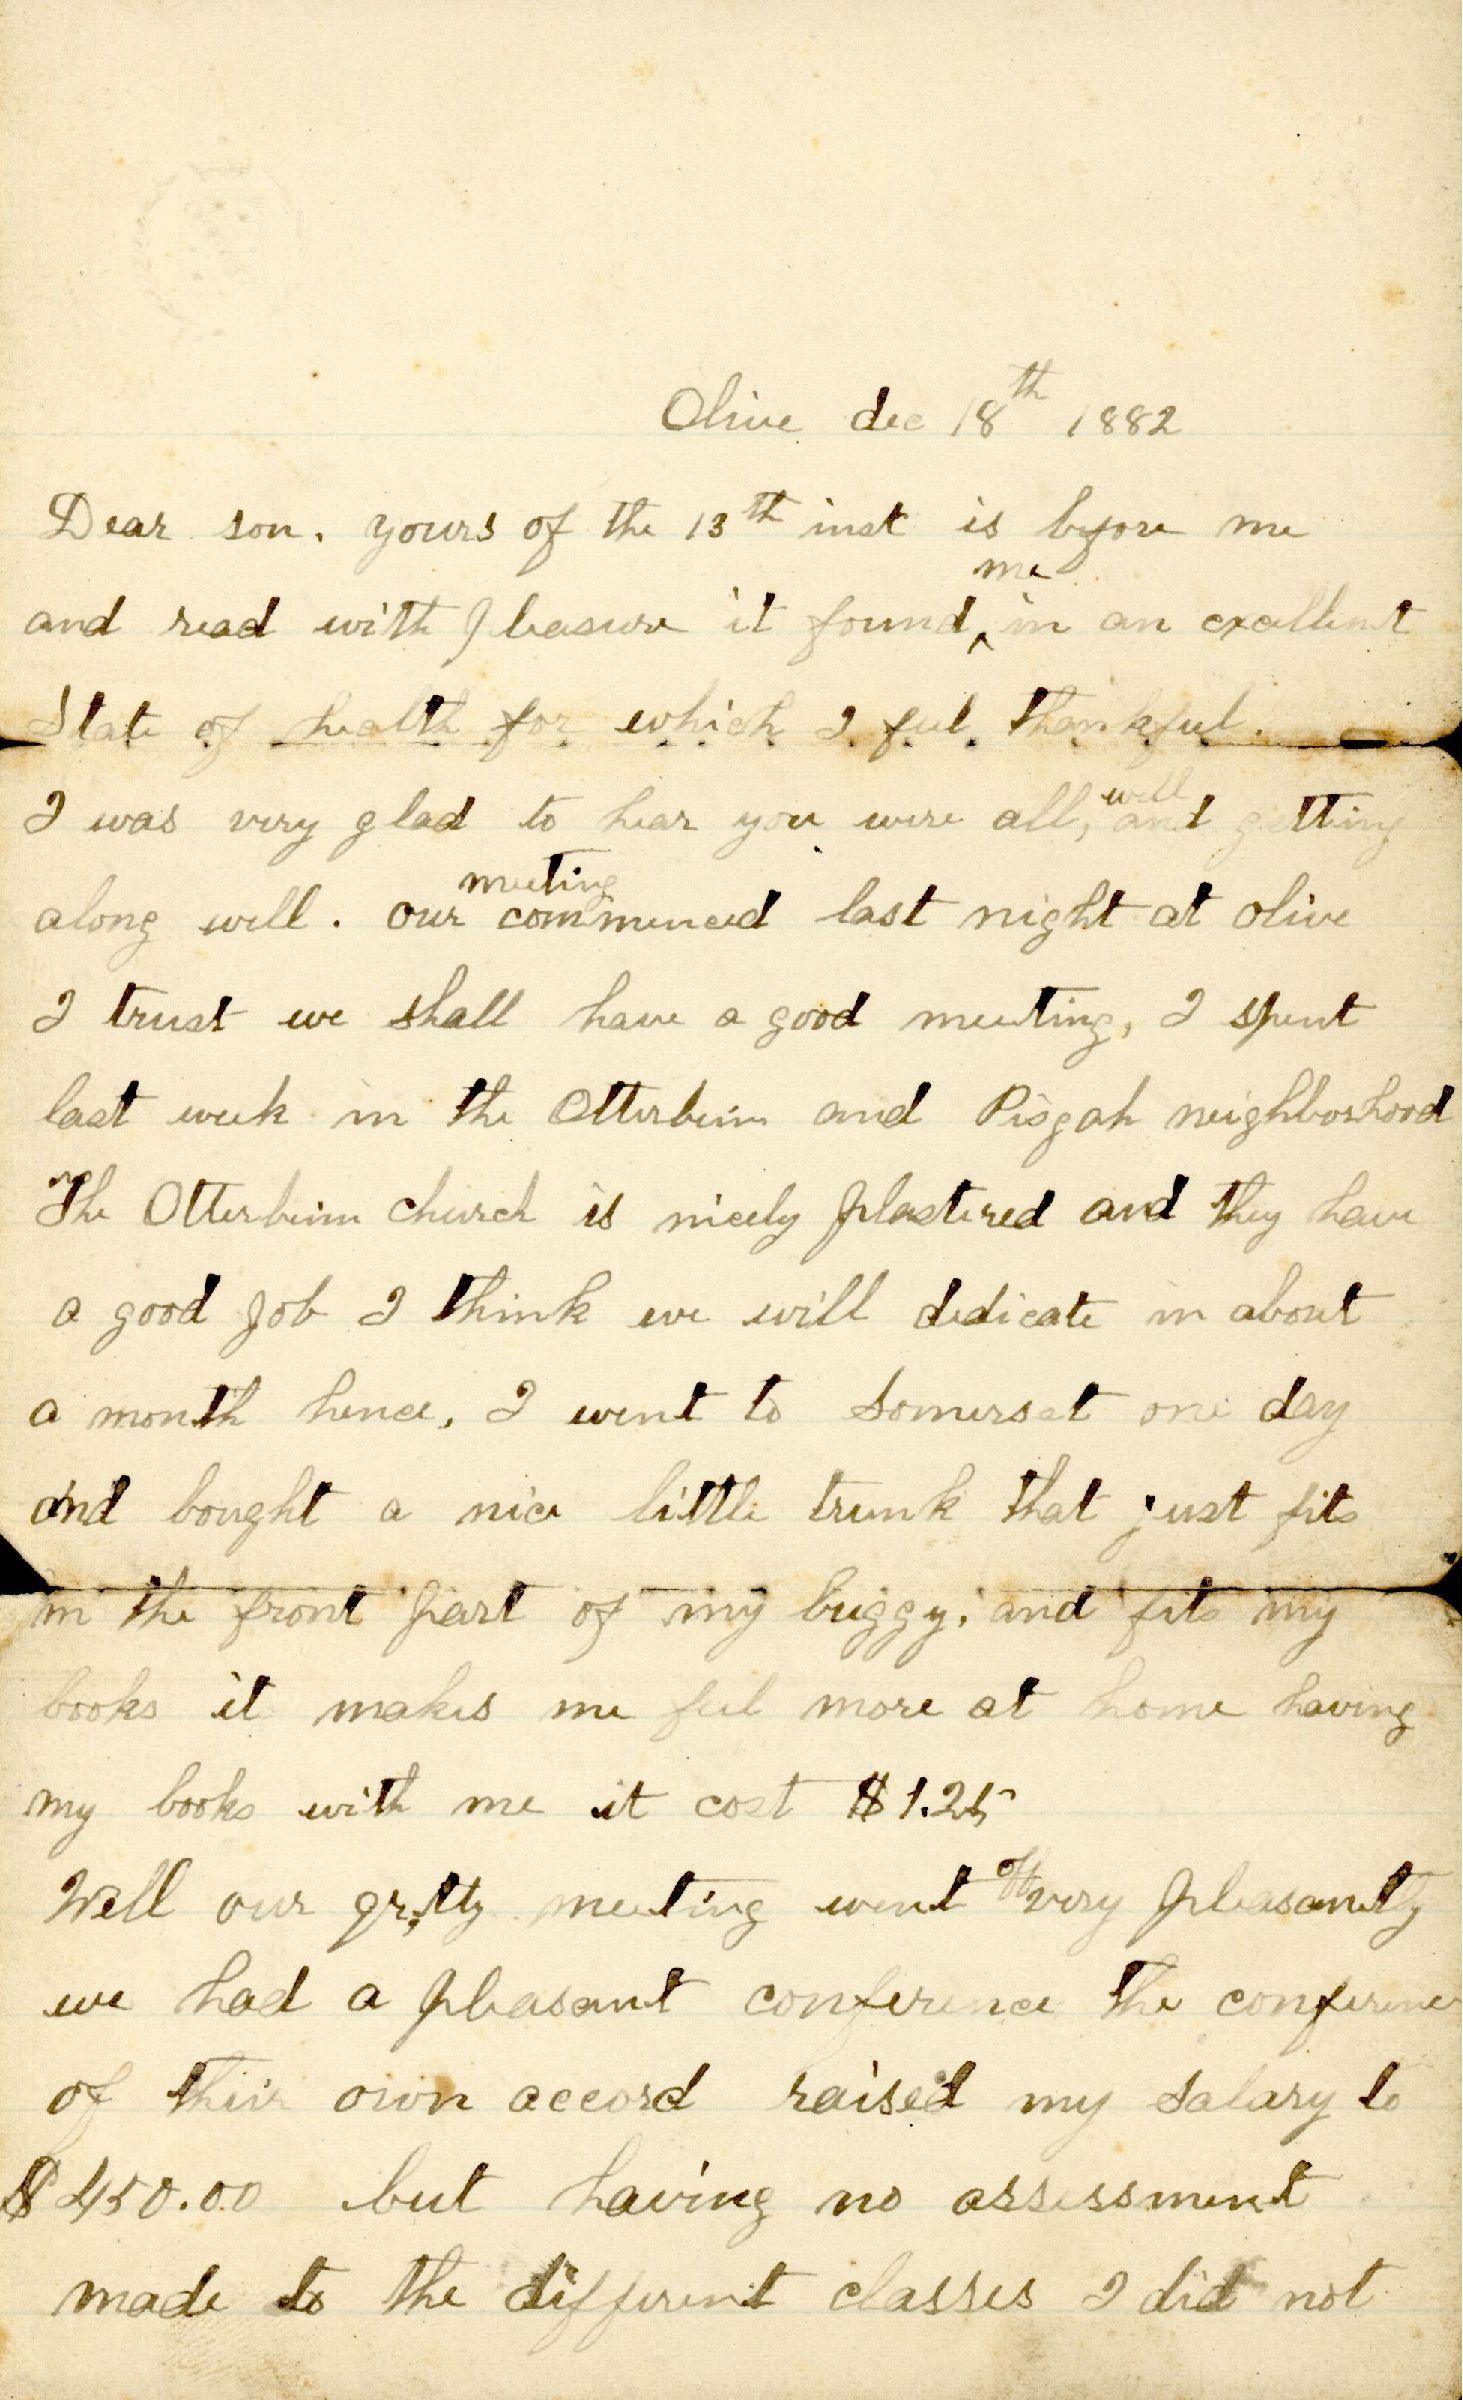 Olive dec 18th 1882
Dear son. yours of the 13th inst is before me
me
and read with pleasure it found ^ in an excellent
State of health for which I feel thankful.
well
I was very glad to hear you were all, and getting
meeting
along well. our commenced last night at olive
I trust we shall have a good meeting, I spent
last week in the Otterbein and Pisgah neighborhood
The Otterbein church is nicely plastered and they have
a good job I think we will dedicate in about
a month hence, I went to Somerset one day
and bought a nice little trunk that just fits
in the front part of my buggy, and fits my
books it makes me feel more at home having
my books with me it cost $1.25
Well our qrtly meeting went off very pleasantly
we had a pleasant conference the conference
of their own accord raised my salary to
$450.00 but having no assessment
made to the different classes I did not